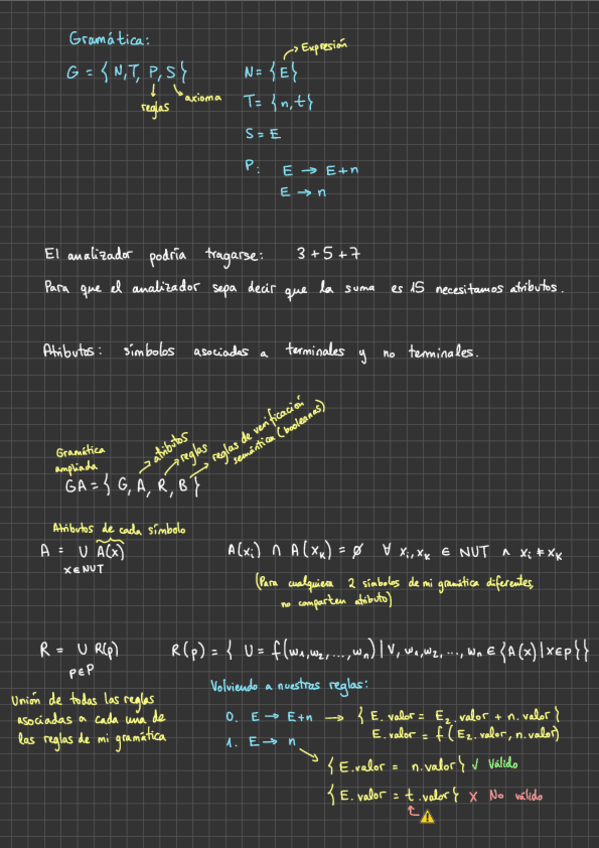 Gramática:
G = { N, T, P, S }
reglas
axioma
N = { E }
Expresión
T = { n, t }
S = E
P: E → E+n
E → n
El analizador podría tragarse: 3 + 5 + 7
Para que el analizador sepa decir que la suma es 15 necesitamos atributos.
Atributos: símbolos asociados a terminales y no terminales.
Gramática
ampliada
atributos
reglas
reglas de verificación
semántica (booleanas)
GA = { G, A, R, B }
Atributos de cada símbolo
A = ∪ A(x)
x∈N∪T
A(xᵢ) ∩ A(xₖ) = ∅ ∀ xᵢ, xₖ ∈ N∪T ∧ xᵢ ≠ xₖ
(Para cualquiera 2 símbolos de mi gramática diferentes,
no comparten atributo)
R = ∪ R(p)
p∈P
R(p) = { U = f(w₁, w₂, ..., wₙ) | V, w₁, w₂, ..., wₙ ∈ {A(x) | x∈p} }
Unión de todas las reglas
asociadas a cada una de
las reglas de mi gramática
Volviendo a nuestras reglas:
0. E → E+n → { E.valor = E₂.valor + n.valor }
E.valor = f(E₂.valor, n.valor)
1. E → n
{ E.valor = n.valor } √ Válido
{ E.valor = t.valor } X No válido